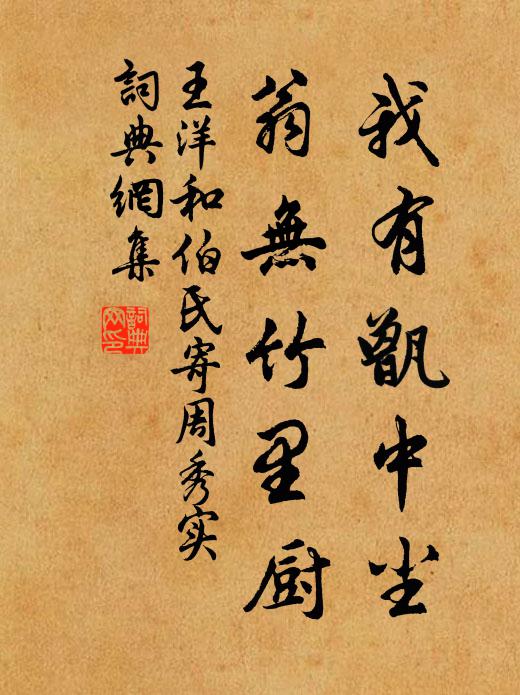 我有甑中尘
翁無竹里厨
王洋和伯氏寄周秀实
詞典網集
詞典
网印